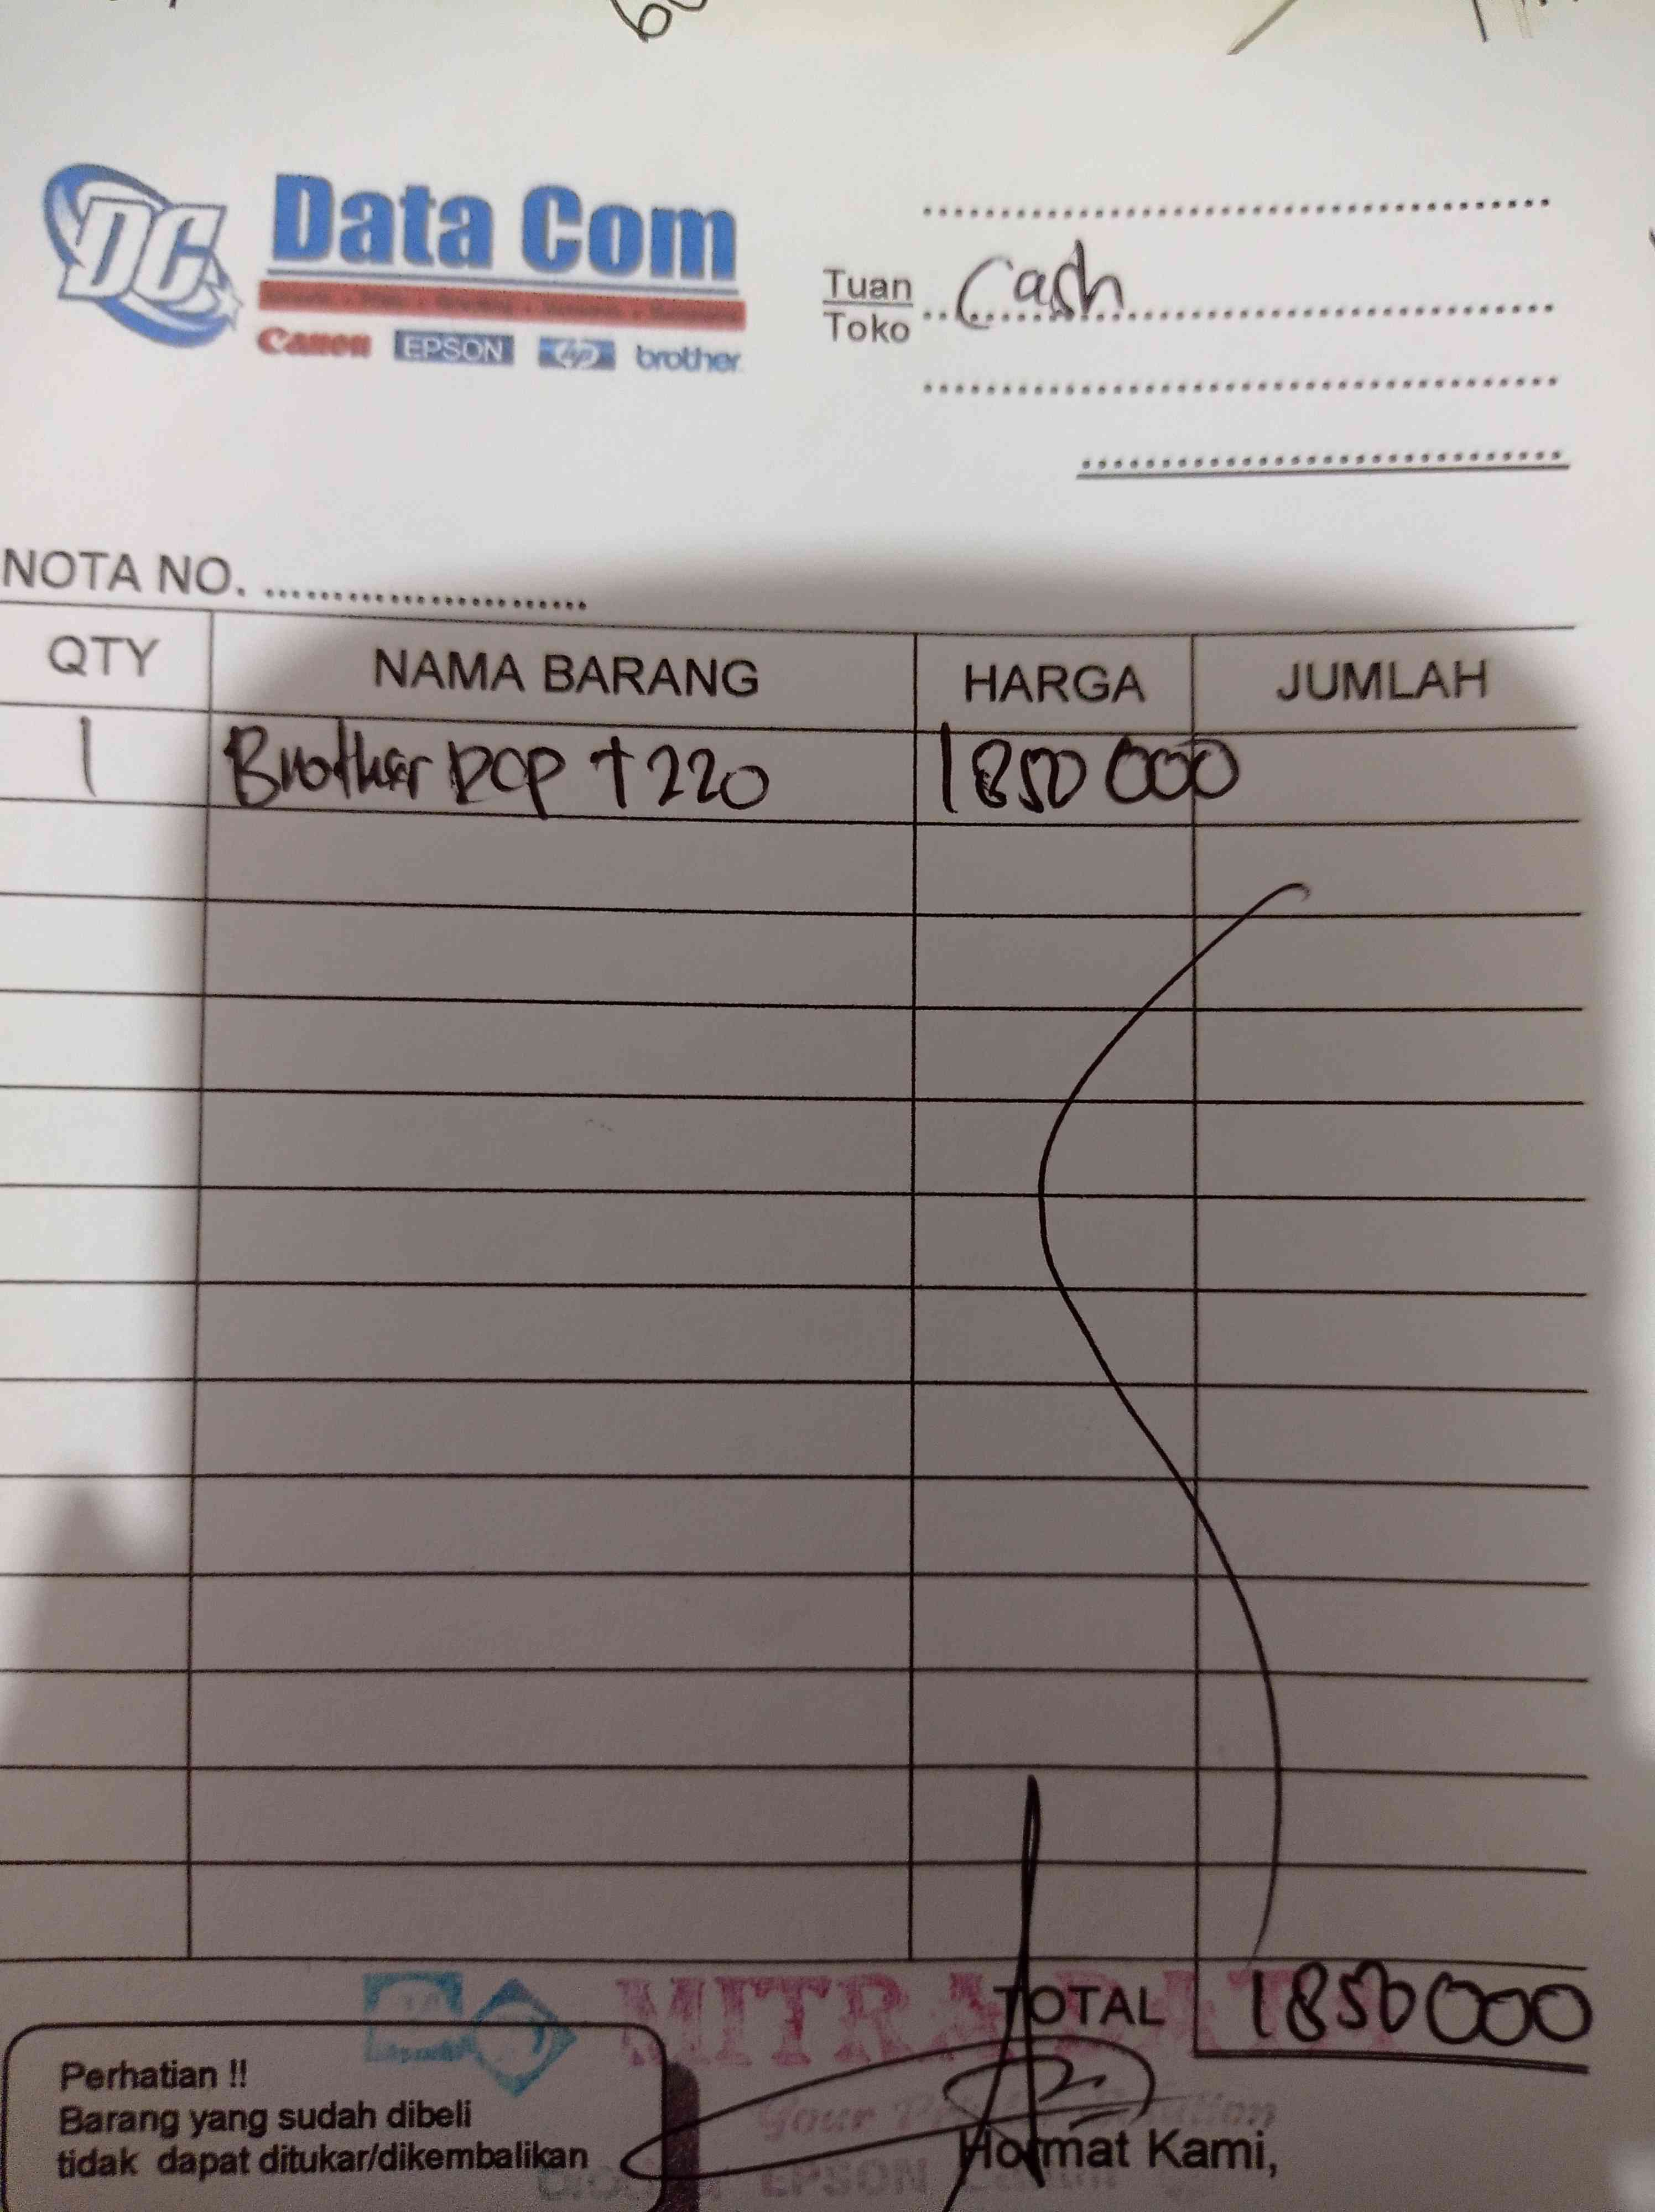 DC
Data Com
Canon EPSON hp brother
Tuan
Toko
Cash
NOTA NO.
QTY NAMA BARANG HARGA JUMLAH
1 Brother DCP T220 1850 000
MITRA DATA
TOTAL 1850000
Perhatian !!
Barang yang sudah dibeli
tidak dapat ditukar/dikembalikan
Your
Hormat Kami,
EPSON